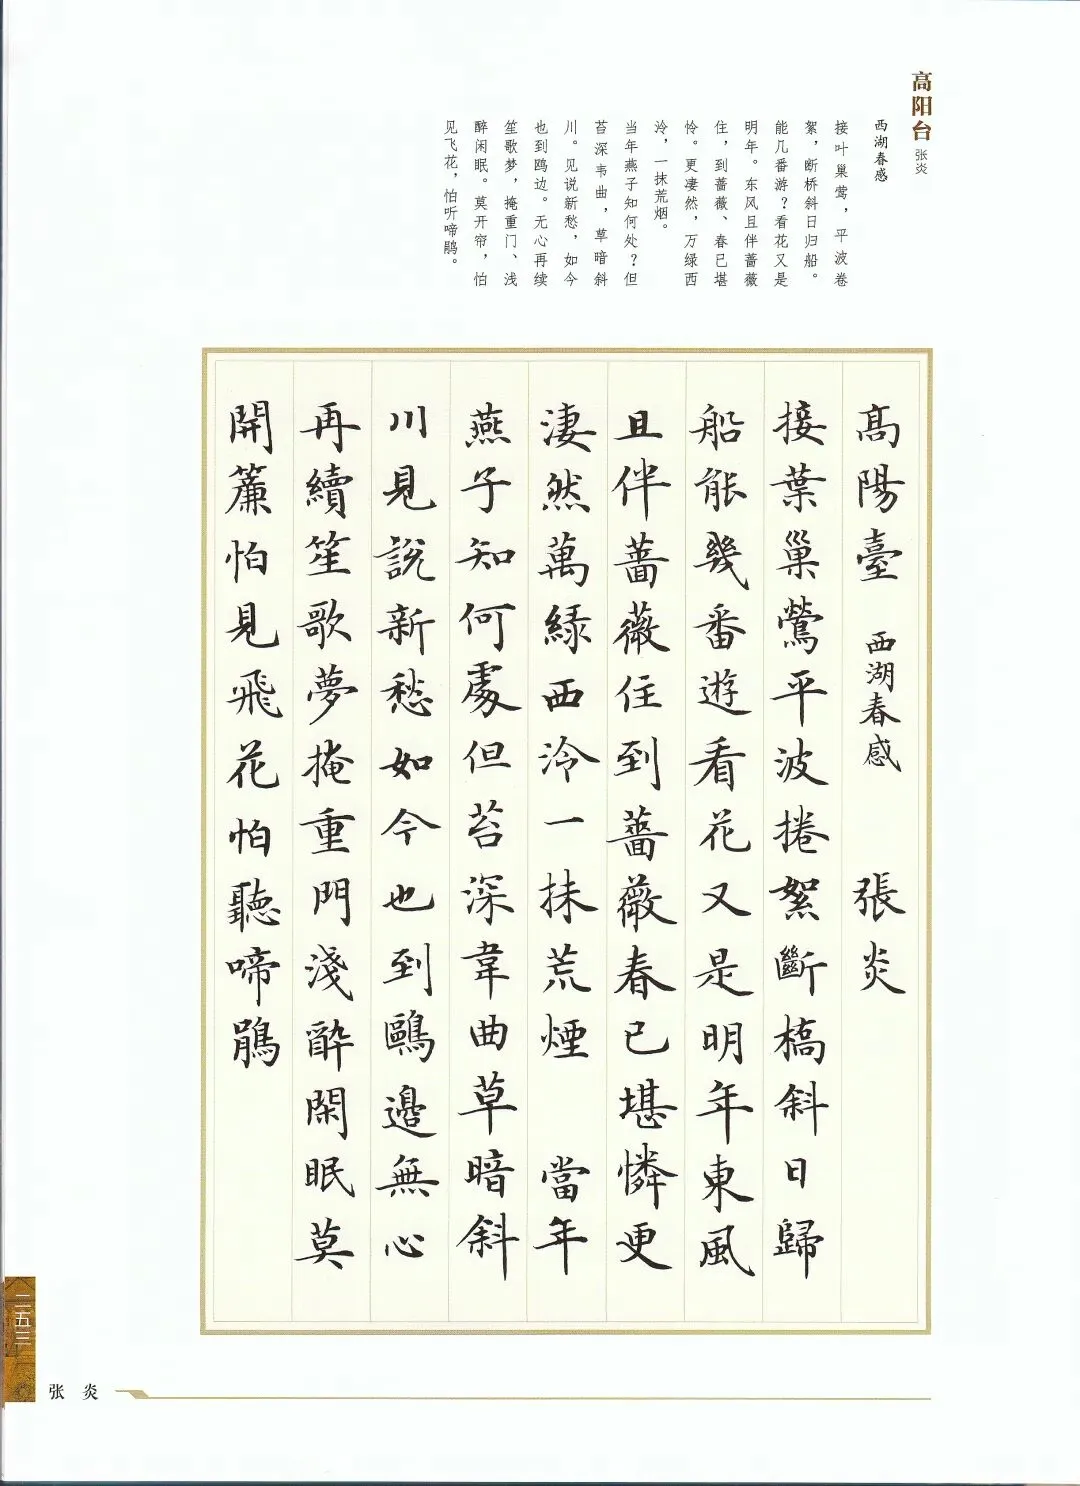 高阳台
张炎
西湖春感
接叶巢莺，平波卷
絮，断桥斜日归船。
能几番游？看花又是
明年。东风且伴蔷薇
住，到蔷薇、春已堪
怜。更凄然，万绿西
泠，一抹荒烟。
当年燕子知何处？但
苔深韦曲，草暗斜
川。见说新愁，如今
也到鸥边。无心再续
笙歌梦，掩重门、浅
醉闲眠。莫开帘，怕
见飞花，怕听啼鹃。
高陽臺 西湖春感 張炎
接葉巢鶯平波捲絮斷橋斜日歸
船能幾番遊看花又是明年東風
且伴薔薇住到薔薇春已堪憐更
淒然萬綠西泠一抹荒煙 當年
燕子知何處但苔深韋曲草暗斜
川見說新愁如今也到鷗邊無心
再續笙歌夢掩重門淺醉閑眠莫
開簾怕見飛花怕聽啼鵑
二五三
张炎